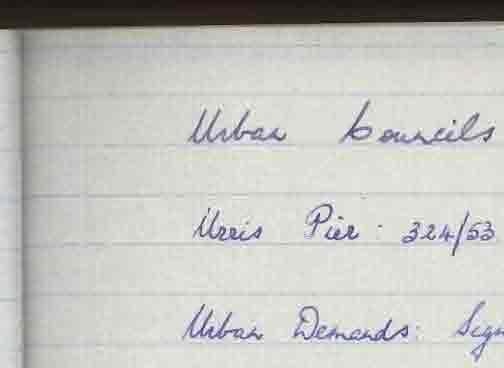 Urban Councils
Urris Pier: 324/53
Urban Demands: